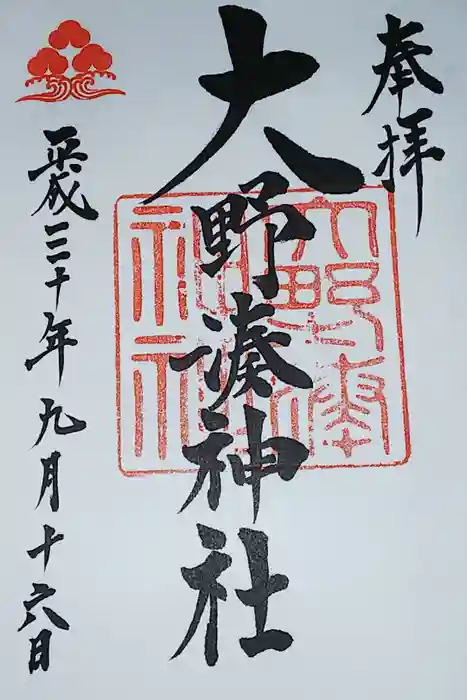 奉拝
大野湊神社
大野湊神社
平成三十年九月十六日